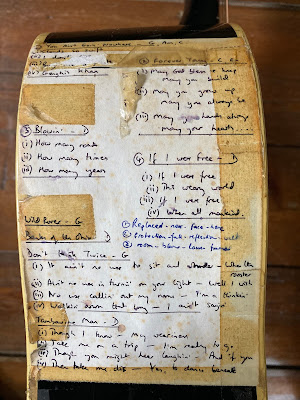 ① You Ain't Going Nowhere - G Am C
(iv) Genghis Khan
② Forever Young - C
(i) May God bless + keep
may you build
(ii) may you grow up
may you always be
(iii) May your hands always
may your heart....
③ Blowin' - D
(i) How many roads
(ii) How many times
(iii) How many years
④ If I were free - D
(i) If I were free
(ii) This weary world
(iii) If I were free
(iv) When all mankind.
Wild Rover - G
Banks of the Ohio - D
① Replaced - near - face - here
② Protection - fall - reflection - wall
③ room - blame - lame
Don't Think Twice - G
(i) It ain't no use to sit and wonder - When the rooster
(ii) Ain't no use in turnin' on your light - Well I wish
(iii) No use callin' out my name - I'm a thinkin'
(iv) Walkin' down that - I can't say
Tambourine Man - D
(i) Though I know - my weariness
(ii) Take me on a trip - I'm ready to go
(iii) Though you might hear laughin' - And if you
(iv) Then take me dis - Yes, to dance beneath